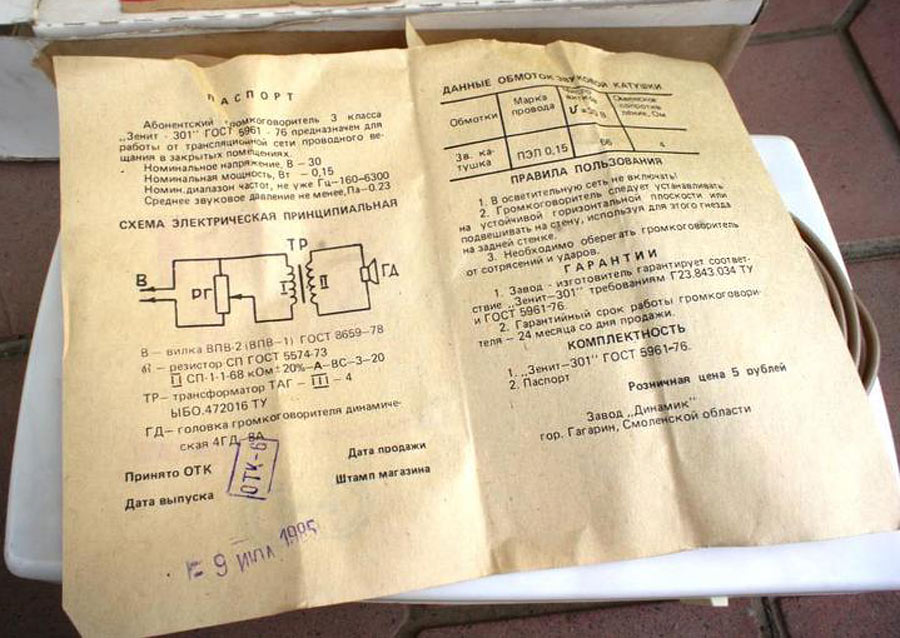 ПАСПОРТ
Абонентский громкоговоритель 3 класса
„Зенит - 301" ГОСТ 5961 - 76 предназначен для
работы от трансляционной сети проводного ве-
щания в закрытых помещениях.
Номинальное напряжение, В – 30
Номинальная мощность, Вт – 0,15
Номин.диапазон частот, не уже Гц–160–6300
Среднее звуковое давление не менее,Па–0.23
СХЕМА ЭЛЕКТРИЧЕСКАЯ ПРИНЦИПИАЛЬНАЯ
ТР
В
РГ
I
II
ГД
В – вилка ВПВ-2 (ВПВ–1) ГОСТ 8659–78
– резистор СП ГОСТ 5574-73
II СП-1-1-68 кОм±20%–А–ВС–3–20
ТР– трансформатор ТАГ – III – 4
ЫБО.472016 ТУ
ГД– головка громкоговорителя динамиче-
ская 4ГД–8А
Принято ОТК
ОТК-6
Дата продажи
Дата выпуска
Штамп магазина
9 ИЮЛ 1985
ДАННЫЕ ОБМОТОК ЗВУКОВОЙ КАТУШКИ
Обмотки
Марка
провода
Число
витков
U =30 В
Омическое
сопротив
ление, Ом
Зв. ка-
тушка
ПЭЛ 0,15
66
4
ПРАВИЛА ПОЛЬЗОВАНИЯ
1. В осветительную сеть не включать!
2. Громкоговоритель следует устанавливать
на устойчивой горизонтальной плоскости или
подвешивать на стену, используя для этого гнезда
на задней стенке.
3. Необходимо оберегать громкоговоритель
от сотрясений и ударов.
ГАРАНТИИ
1. Завод - изготовитель гарантирует соответ-
ствие „Зенит–301" требованиям Г23.843.034 ТУ
и ГОСТ 5961-76.
2. Гарантийный срок работы громкоговори-
теля – 24 месяца со дня продажи.
КОМПЛЕКТНОСТЬ
1. „Зенит–301" ГОСТ 5961-76.
2. Паспорт
Розничная цена 5 рублей
Завод „Динамик"
гор. Гагарин, Смоленской области